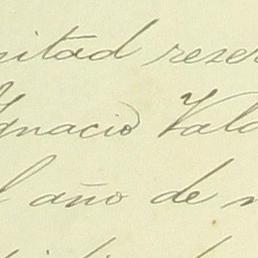 mitad reser
Ignacio Vald
l año de m